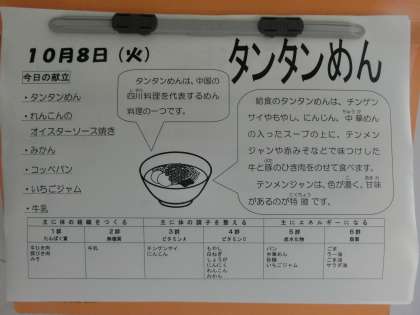 10月8日（火）
タンタンめん
今日の献立
・タンタンめん
・れんこんの
オイスターソース焼き
・みかん
・コッペパン
・いちごジャム
・牛乳
タンタンめんは、中国の
四川料理を代表するめん
料理の一つです。
給食のタンタンめんは、チンゲン
サイやもやし、にんじん、中華めん
の入ったスープの上に、テンメン
ジャンや赤みそなどで味つけした
牛と豚のひき肉をのせて食べます。
テンメンジャンは、色が濃く、甘味
があるのが特徴です。
主に体の組織をつくる 主に体の調子を整える 主にエネルギーになる
1群 2群 3群 4群 5群 6群
たんぱく質 無機質 ビタミンA ビタミンC 炭水化物 脂質
牛ひき肉 牛乳 チンゲンサイ もやし パン ごま
豚ひき肉 にんじん 白ねぎ 中華めん ラー油
みそ しょうが 砂糖 ごま油
にんにく いちごジャム サラダ油
れんこん
みかん